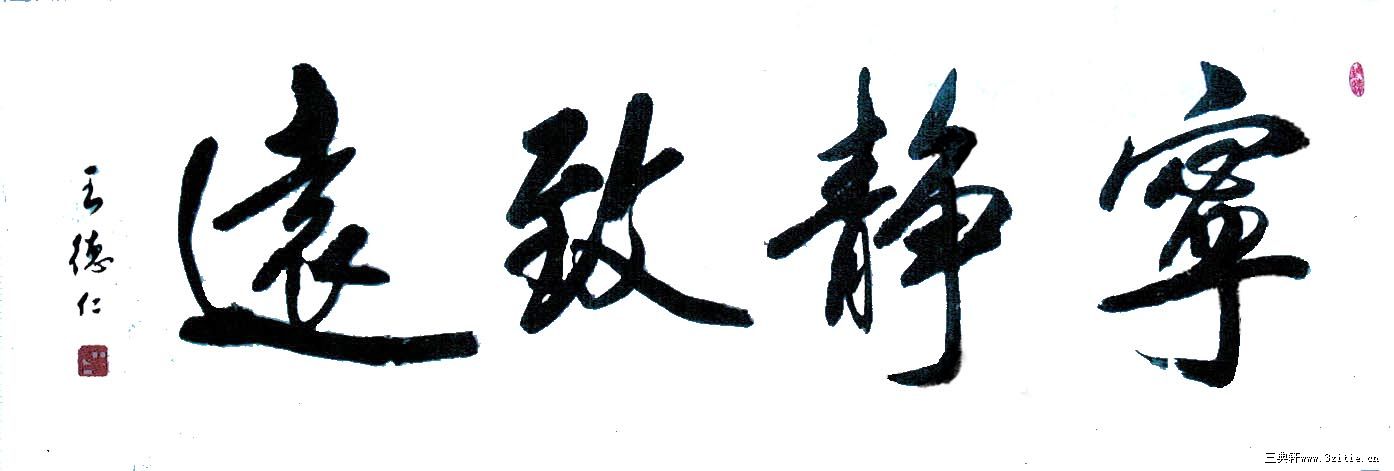 寧靜致遠
王德仁
三典轩www.3zitie.cn